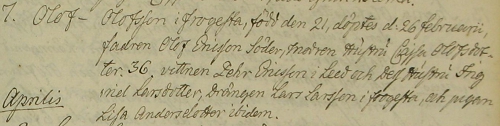 7. Olof - Olofsson i frogesta, född den 21, döptes d. 26 februarii,
fadren Olof Ericson Söder, Modren Hustru Cajsa Olofsdot-
ter. 36, vittnen Pehr Ericson i Leed och Dess Hustru Frig
Aprilis
nel Larsdotter, Drängen Lars Larsson i frogesta, och pigan
Lisa Andersdotter ibidem.